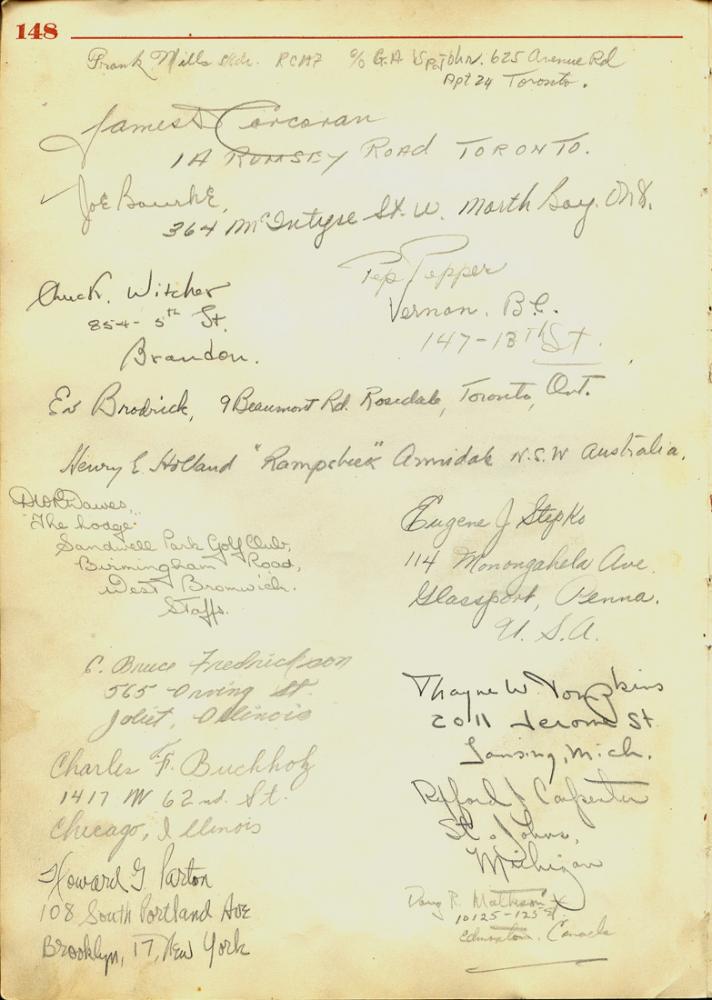 148
Frank Mills RCAF c/o G.A. Upjohn. 625 Avenue Rd
Apt 24 Toronto.
James D Corcoran
1A RUMSEY ROAD TORONTO.
Joe Bourke,
364 McIntyre St. W. North Bay. Ont.
Pep Pepper
Vernon. B.C.
147-18th St.
Chuck. Witcher
854-5th St.
Brandon.
Ed Brodrick, 9 Beaumont Rd. Rosedale, Toronto, Ont.
Henry E. Holland "Rampsbeck" Armidale N.S.W Australia.
Dawes,
"The Lodge"
Sandwell Park Golf Club,
Birmingham Road,
West Bromwich.
Staffs.
Eugene J Stepko
114 Monongahela Ave.
Glassport, Penna.
U.S.A.
C. Bruce Fredrickson
565 Irving St.
Joliet, Illinois
Thayne W. Tompkins
2011 Jerome St
Lansing, Mich.
Charles F. Buchholz
1417 W 62nd. St.
Chicago, Illinois
J Carpenter
St. Johns,
Michigan
Howard G. Parton
108 South Portland Ave
Brooklyn, 17, New York
Doug R. Matheson
10125-125 St.
Edmonton. Canada